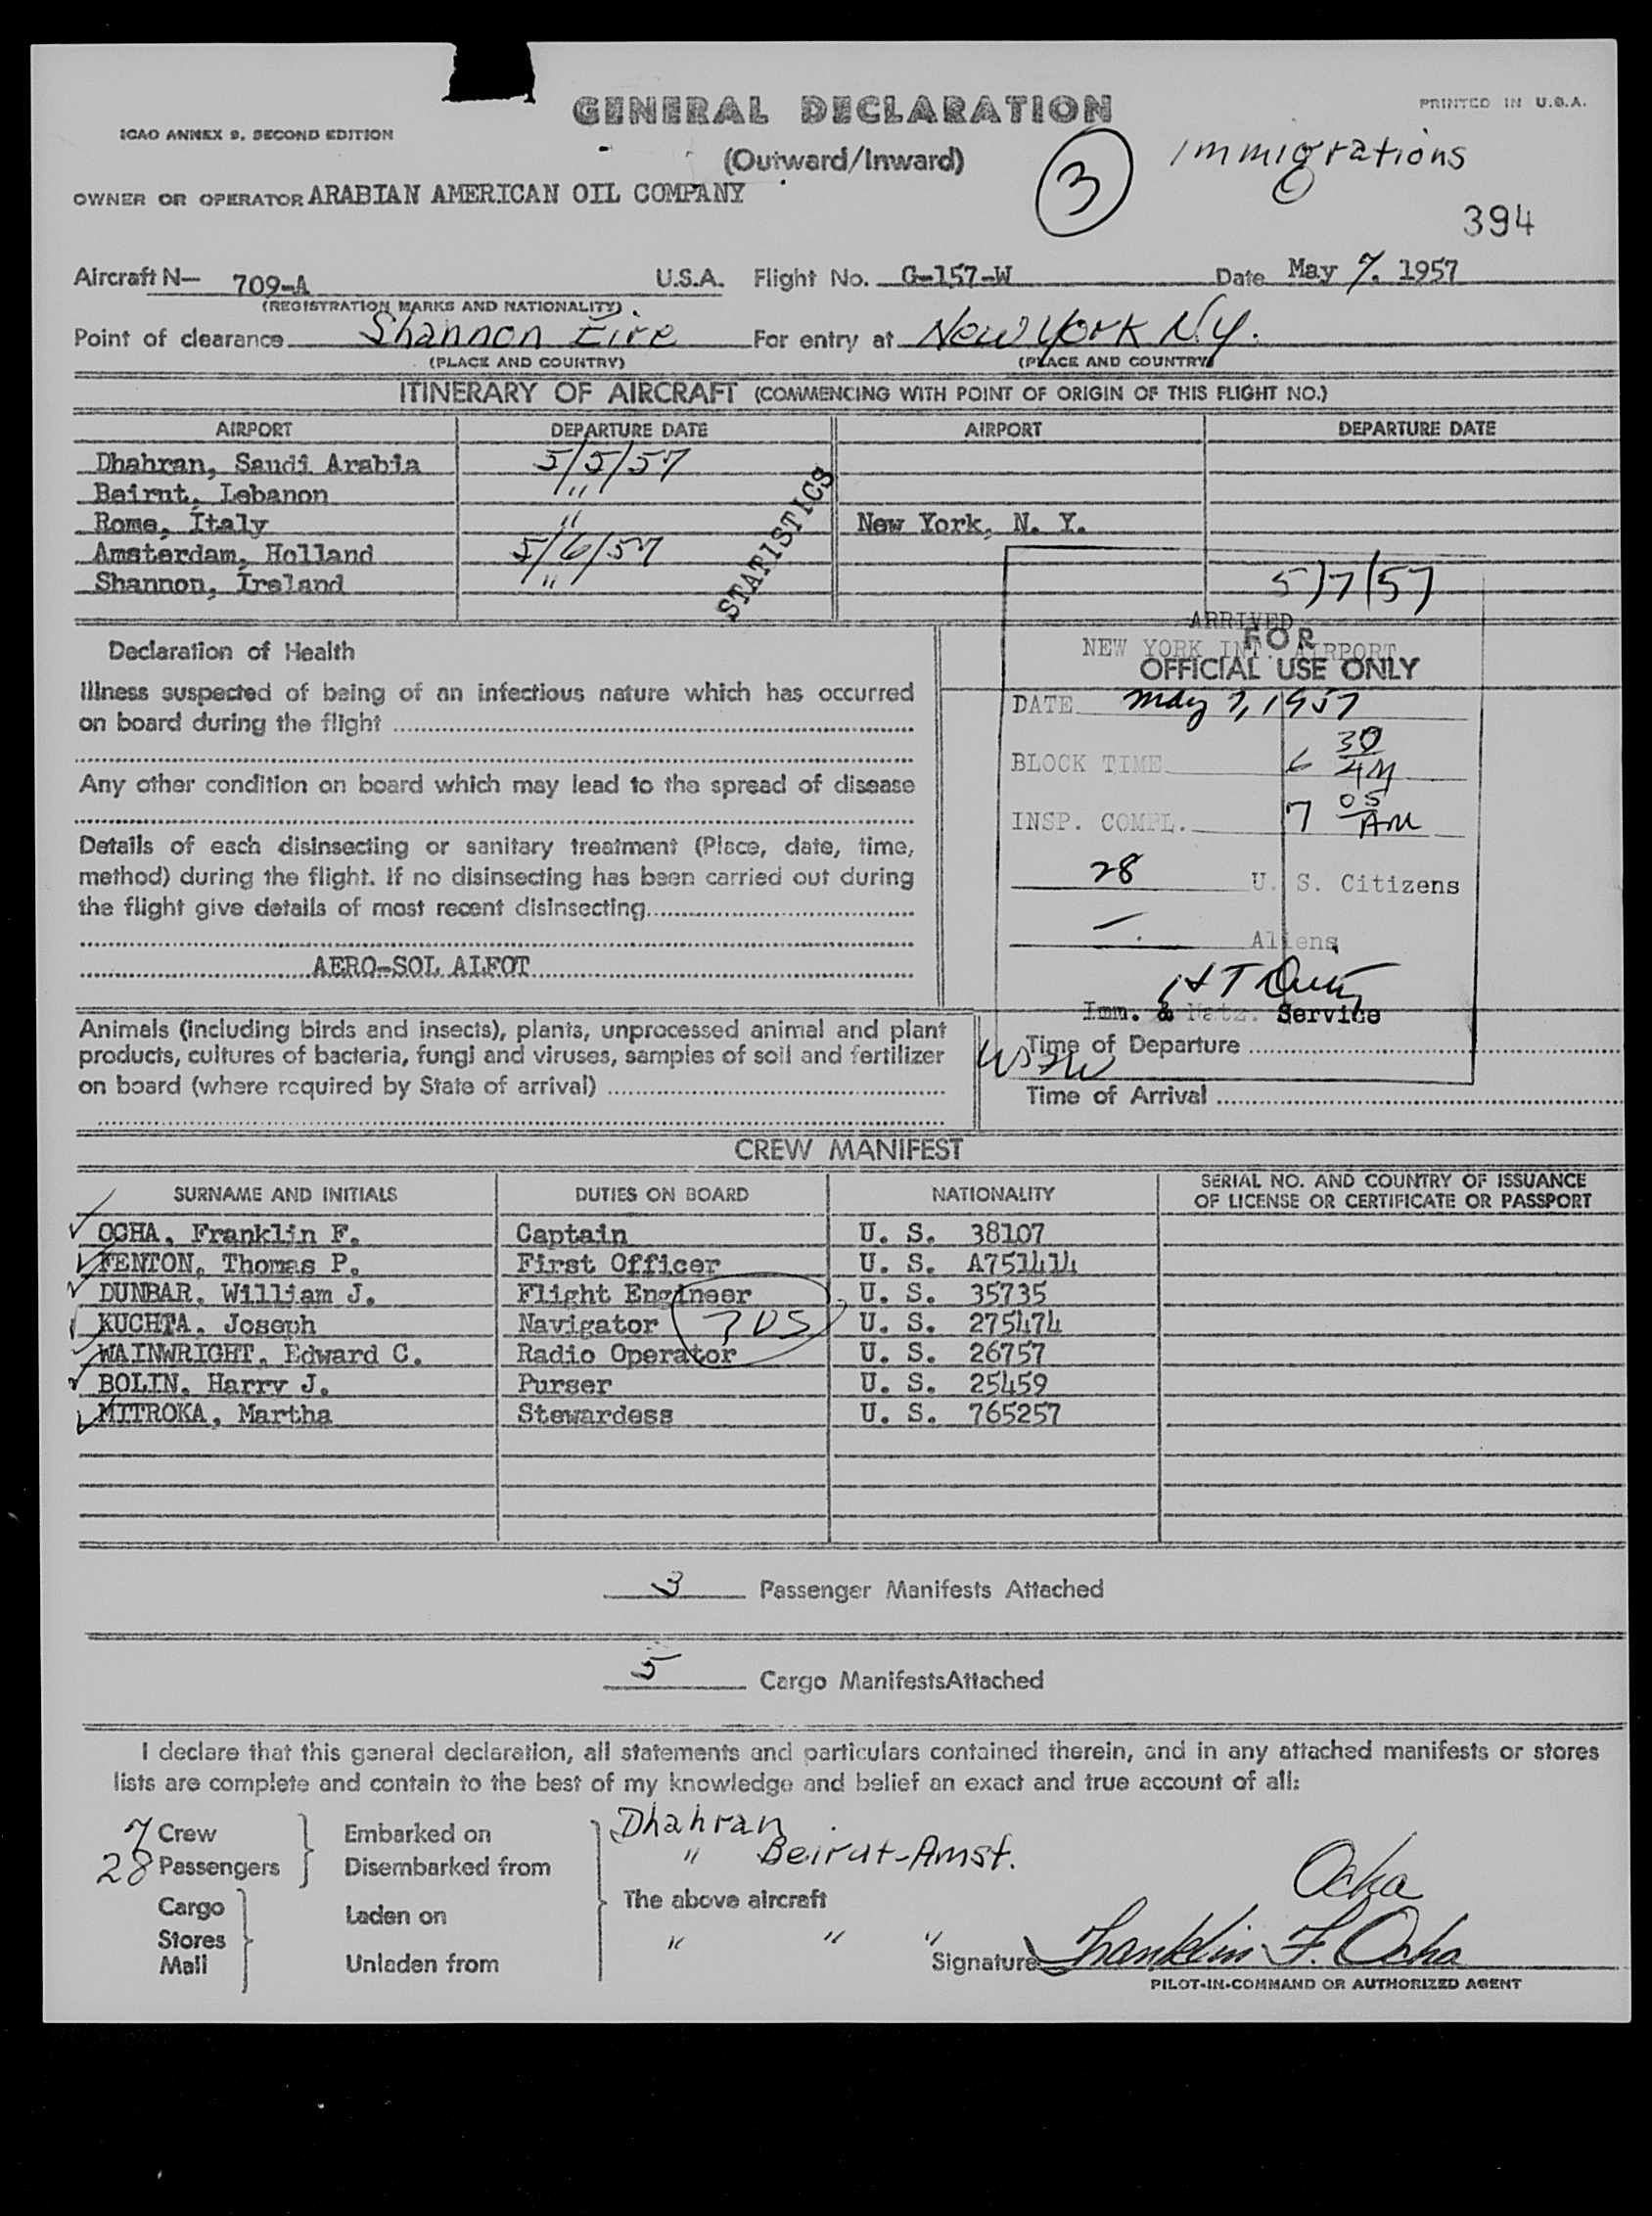 GENERAL DECLARATION
PRINTED IN U.S.A.
ICAO ANNEX 9, SECOND EDITION
(Outward/Inward)
3
Immigrations
OWNER OR OPERATOR ARABIAN AMERICAN OIL COMPANY
394
Aircraft N— 709-A U.S.A. Flight No. G-157-W Date May 7, 1957
(REGISTRATION MARKS AND NATIONALITY)
Point of clearance Shannon Eire For entry at New York N.Y.
(PLACE AND COUNTRY) (PLACE AND COUNTRY)
ITINERARY OF AIRCRAFT (COMMENCING WITH POINT OF ORIGIN OF THIS FLIGHT NO.)
AIRPORT DEPARTURE DATE AIRPORT DEPARTURE DATE
Dhahran, Saudi Arabia 5/5/57
Beirut, Lebanon "
Rome, Italy " New York, N. Y.
Amsterdam, Holland 5/6/57
Shannon, Ireland " 5/7/57
STATISTICS
ARRIVED
NEW YORK INT. AIRPORT
FOR
OFFICIAL USE ONLY
DATE May 7, 1957
BLOCK TIME 6 30 AM
INSP. COMPL. 7 05 AM
28 U. S. Citizens
— Aliens
Imm. & Natz. Service
Time of Departure
Time of Arrival
Declaration of Health
Illness suspected of being of an infectious nature which has occurred
on board during the flight
Any other condition on board which may lead to the spread of disease
Details of each disinsecting or sanitary treatment (Place, date, time,
method) during the flight. If no disinsecting has been carried out during
the flight give details of most recent disinsecting
AERO-SOL ALFOT
Animals (including birds and insects), plants, unprocessed animal and plant
products, cultures of bacteria, fungi and viruses, samples of soil and fertilizer
on board (where required by State of arrival)
CREW MANIFEST
SURNAME AND INITIALS DUTIES ON BOARD NATIONALITY SERIAL NO. AND COUNTRY OF ISSUANCE
OF LICENSE OR CERTIFICATE OR PASSPORT
OCHA, Franklin F. Captain U. S. 38107
FENTON, Thomas P. First Officer U. S. A751414
DUNBAR, William J. Flight Engineer U. S. 35735
KUCHTA, Joseph Navigator 7 US U. S. 275474
WAINWRIGHT, Edward C. Radio Operator U. S. 26757
BOLIN, Harry J. Purser U. S. 25459
MITROKA, Martha Stewardess U. S. 765257
3 Passenger Manifests Attached
5 Cargo ManifestsAttached
I declare that this general declaration, all statements and particulars contained therein, and in any attached manifests or stores
lists are complete and contain to the best of my knowledge and belief an exact and true account of all:
7 Crew Embarked on Dhahran
28 Passengers Disembarked from " Beirut-Amst.
Cargo Laden on The above aircraft
Stores " " "
Mail Unladen from
Ocha
Signature Franklin F. Ocha
PILOT-IN-COMMAND OR AUTHORIZED AGENT